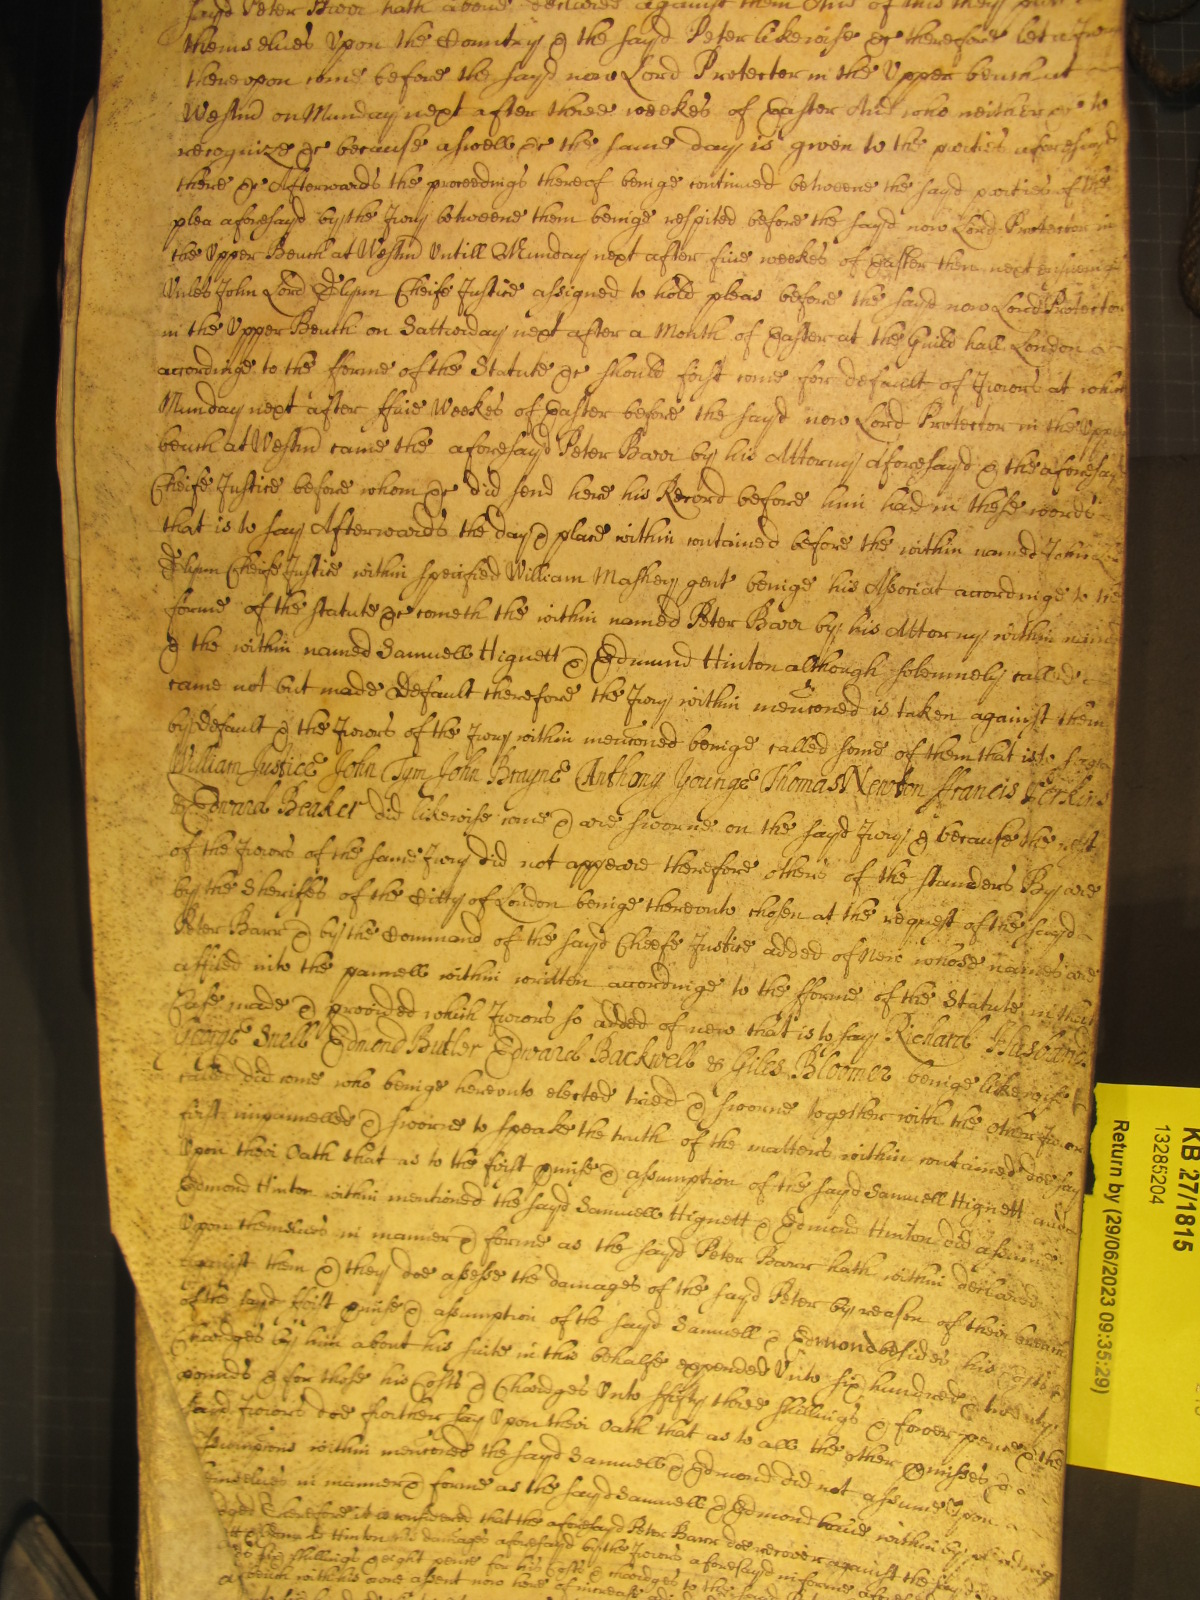 sayd Peter Barr hath above declared against them And of this they put
themselues Upon the Countrey & the sayd Peter likewise &c therefore let a Jury
thereupon come before the sayd now Lord Protector in the Upper bench at
Westmr on Munday next after three weekes of Easter And who neither &c to
recognize &c because aswell &c the same day is given to the parties aforesayd
there &c Afterwards the proceedings thereof beinge continued betweene the sayd parties of the
plea aforesayd by the Jury betweene them beinge respited before the sayd now Lord Protector in
the Upper Bench at Westmr Untill Munday next after five weekes of Easter then next ensueinge
Unles John Lord Glynn Cheife Justice assigned to hold pleas before the sayd now Lord Protector
in the Upper Bench on Satturday next after a Month of Easter at the Guild hall London
accordinge to the fforme of the Statute &c should first come for default of Jurors at which
Munday next after ffive Weekes of Easter before the sayd now Lord Protector in the Upper
bench at Westmr came the aforesayd Peter Barr by his Attorny aforesayd & the aforesayd
Cheife Justice before whom &c did send here his Record before him had in these words
that is to say Afterwards the day & place within contained before the within named John Lord
Glynn Cheife Justice within specified William Maskey gent beinge his Associat accordinge to the
forme of the statute &c cometh the within named Peter Barr by his Attorny within named
& the within named Samuell Hignett & Edmund Hinton although solemnely called
came not but made Default therefore the Jury within menconed is taken against them
by Default & the Jurors of the Jury within menconed beinge called some of them that is to say
William Justice John Tym John Brayne Anthony Younge Thomas Newton ffrancis Perkins
& Edward Beaker did likewise come & are sworne on the sayd Jury & because the rest
of the Jurors of the same Jury did not appeare therefore others of the standers By are
by the Sheriffes of the Citty of London beinge thereunto chosen at the request of the sayd
Peter Barr & by the Command of the sayd Cheefe Justice added of New whose names are
affiled into the pannell within written accordinge to the fforme of the Statute in that
Case made & provided which Jurors so added of new that is to say Richard Husband
George Snell Edmond Butler Edward Backwell & Giles Bloomer beinge likewise
called did come who beinge hereunto elected tried & sworne together with the other Jurors
first impannelled & sworne to speake the truth of the matters within contained doe say
Upon their Oath that as to the first promise & assumption of the sayd Samuell Hignett and
Edmond Hinton within mentioned the sayd Samuell Hignett & Edmond Hinton did assume
Upon themselues in manner & forme as the sayd Peter Barr hath within declared
against them & they doe assesse the damages of the sayd Peter by reason of their
of the sayd ffirst promise & assumption of the sayd Samuell & Edmond besides his Costs &
Chardges by him about his suite in this behalfe expended Unto six hundred & twenty
pounds & for those his Costs & Chardges Unto ffifty three shillings & fower pence & the
said Jurors doe further say Upon their Oath that as to all the other promises &
assumpcions within menconed the sayd Samuell & Edmond did not assume Upon
themselues in manner & forme as the sayd Samuell & Edmond have within by pleadinge
Therefore it is considered that the aforesayd Peter Barr doe recover against the sayd
Hinton his damages aforesayd by the Jurors aforesayd in forme aforesayd
shillings & eight pence for his Costs & Chardges to the sayd Peter
with his owne assent now here of increase
KB 27/1815
13285204
Return by (29/06/2023 09:35:29)